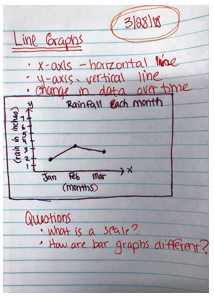 3/28/18
Line Graphs
• x-axis - horizontal line
• y-axis - vertical line
• change in data over time
y
Rainfall Each month
(rain in inches)
7
6
5
4
3
2
1
x
Jan Feb Mar
(months)
Questions
• What is a scale?
• How are bar graphs different?